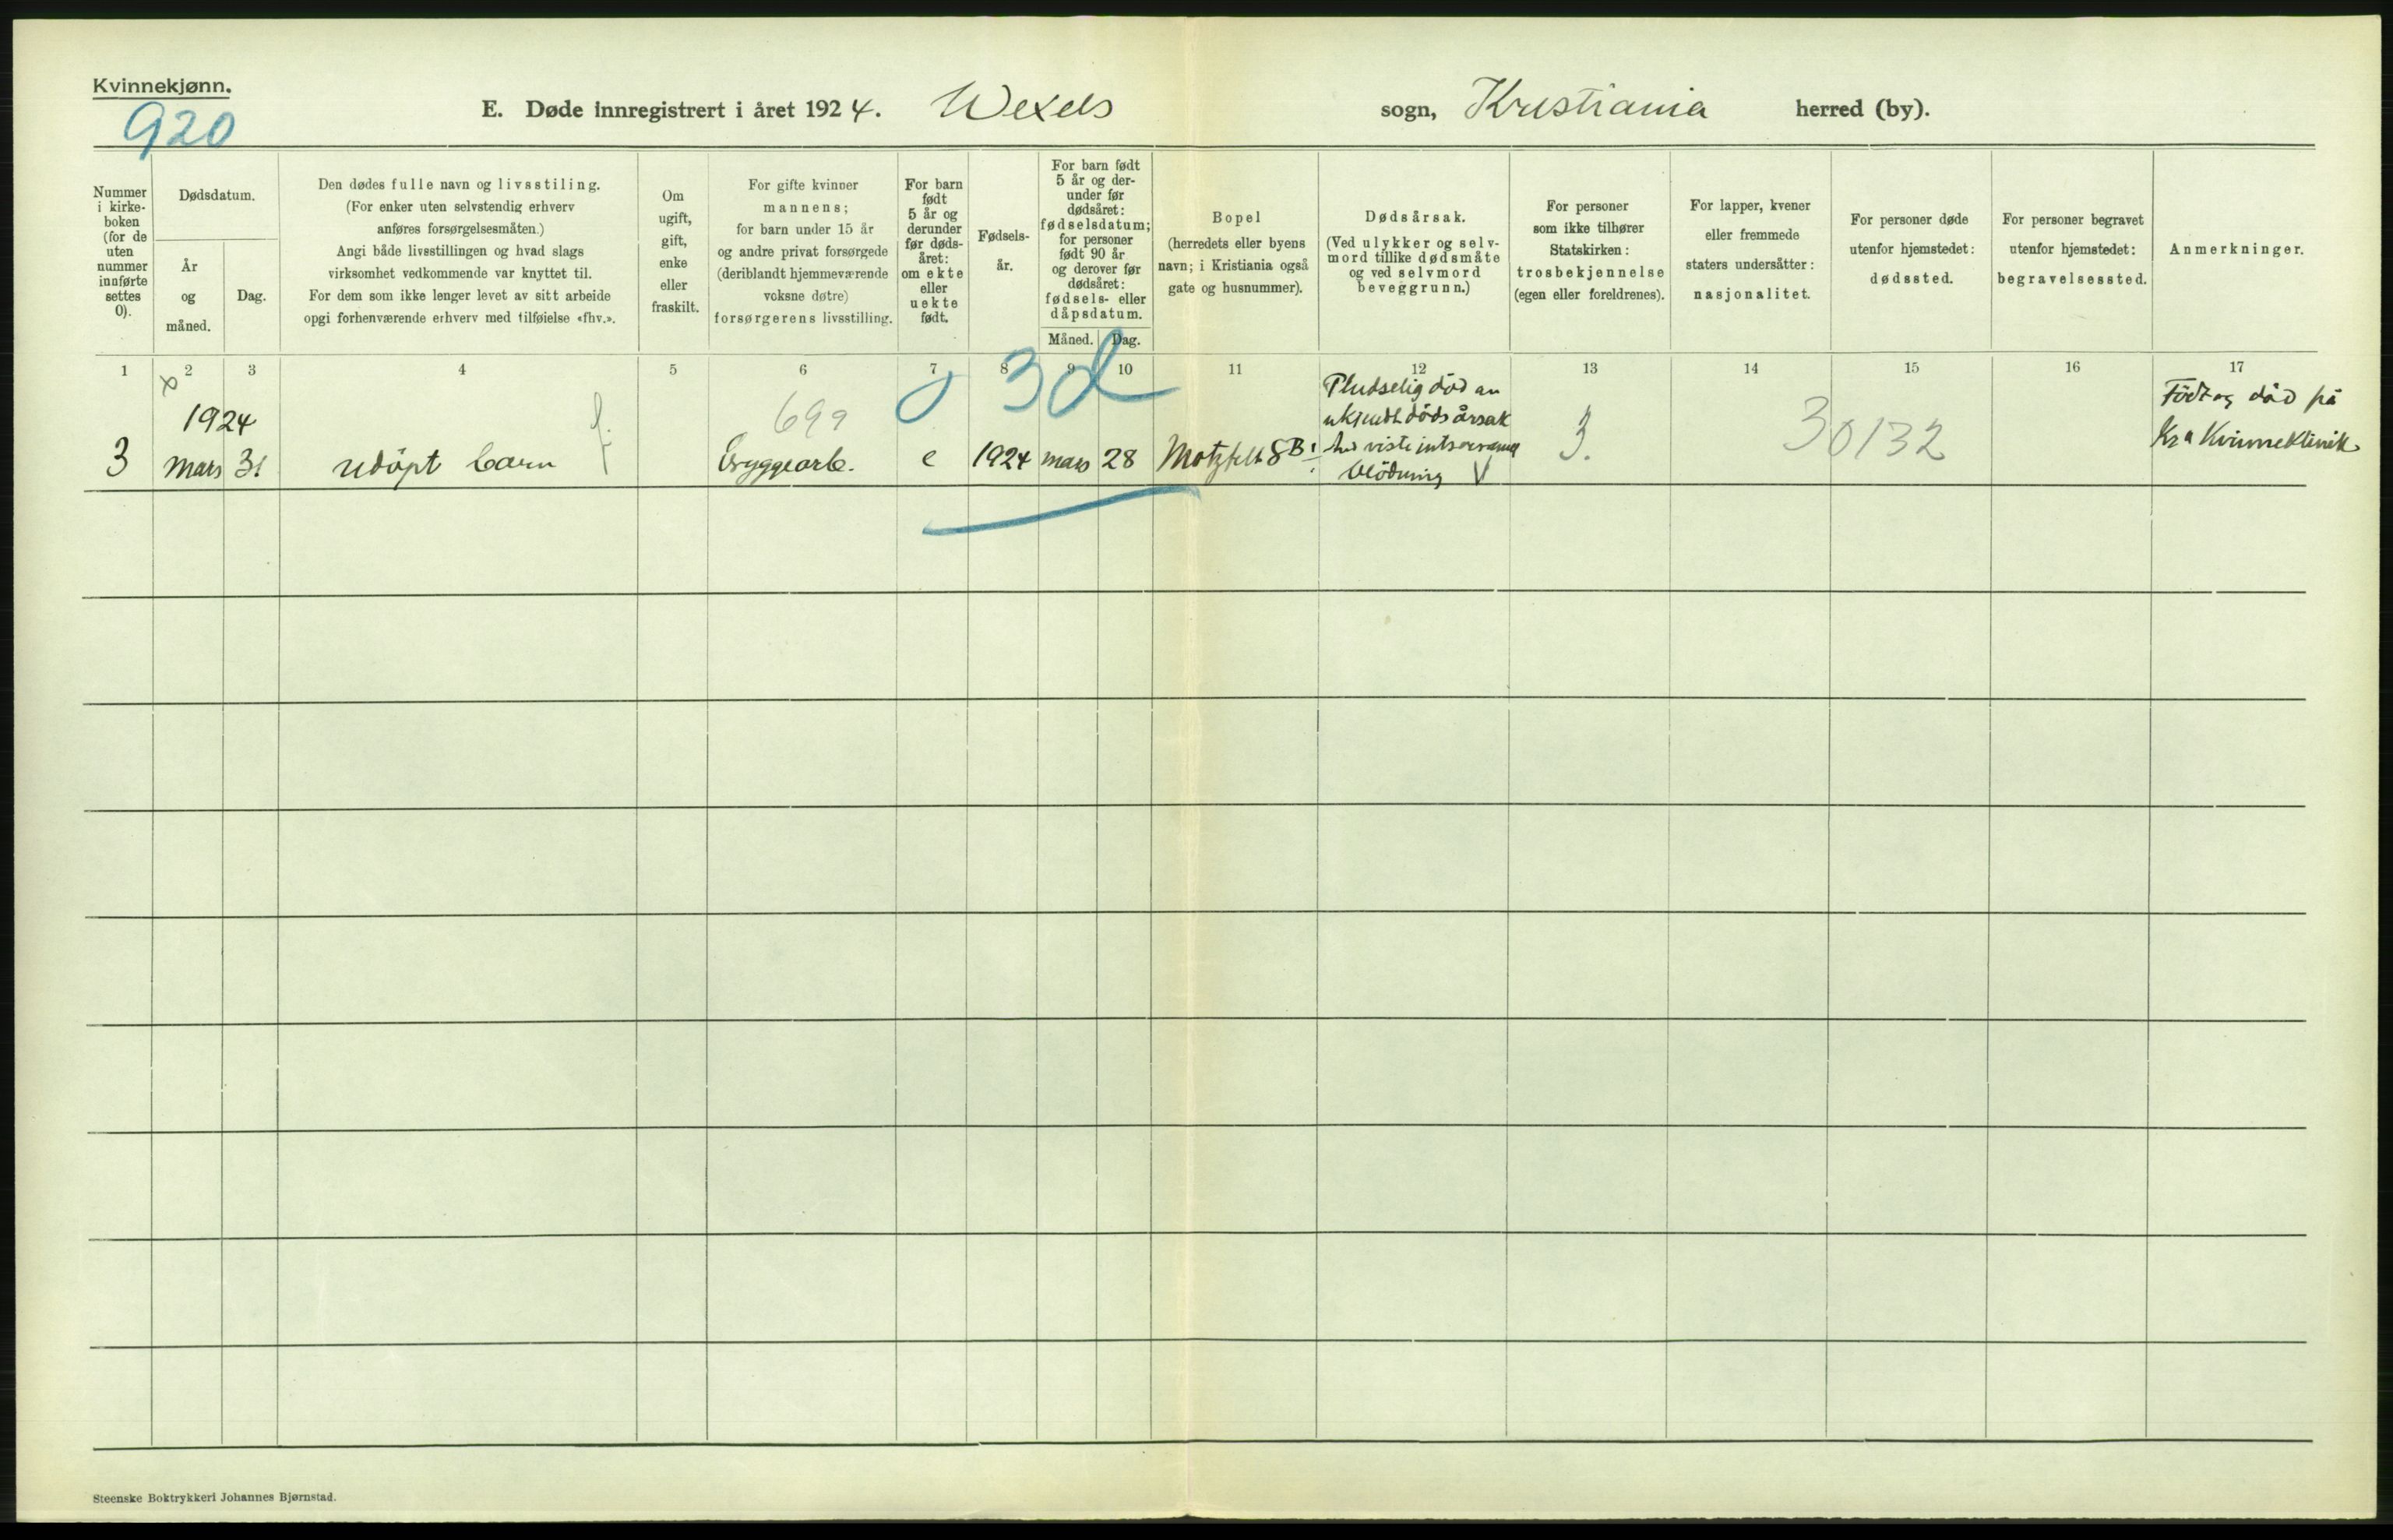 Kvinnekjønn.
920
E. Døde innregistrert i året 1924. Wexels sogn, Kristiania herred (by).
Nummer i kirke- boken (for de uten nummer innførte settes 0).
Dødsdatum.
År og måned.
Dag.
Den dødes fulle navn og livsstiling.
(For enker uten selvstendig erhverv
anføres forsørgelsesmåten.)
Angi både livsstillingen og hvad slags
virksomhet vedkommende var knyttet til.
For dem som ikke lenger levet av sitt arbeide
opgi forhenværende erhverv med tilføielse «fhv.».
Om
ugift,
gift,
enke
eller
fraskilt.
For gifte kvinner
mannens;
for barn under 15 år
og andre privat forsørgede
(deriblandt hjemmeværende
voksne døtre)
forsørgerens livsstilling.
For barn
født
5 år og
derunder
før døds-
året:
om ekte
eller
uekte
født.
Fødsels-
år.
For barn født
5 år og der-
under før
dødsåret:
fødselsdatum;
for personer
født 90 år
og derover før
dødsåret:
fødsels- eller
dåpsdatum.
Måned. Dag.
Bopel
(herredets eller byens
navn; i Kristiania også
gate og husnummer).
Dødsårsak.
(Ved ulykker og selv-
mord tillike dødsmåte
og ved selvmord
beveggrunn.)
For personer
som ikke tilhører
Statskirken:
trosbekjennelse
(egen eller foreldrenes).
For lapper, kvener
eller fremmede
staters undersåtter:
nasjonalitet.
For personer døde
utenfor hjemstedet:
dødssted.
For personer begravet
utenfor hjemstedet:
begravelsessted.
Anmerkninger.
1 2 3 4 5 6 7 8 9 10 11 12 13 14 15 16 17
1924
3 mars 31 udöpt barn f.
699
Bryggearb. e 1924 mars 28
3d
Motzfeldt 8B
Pludselig död an
ukjendt dödsårsak
blödning
3.
30132
Födt og död på
Kra Kvinneklinik
Steenske Boktrykkeri Johannes Bjørnstad.